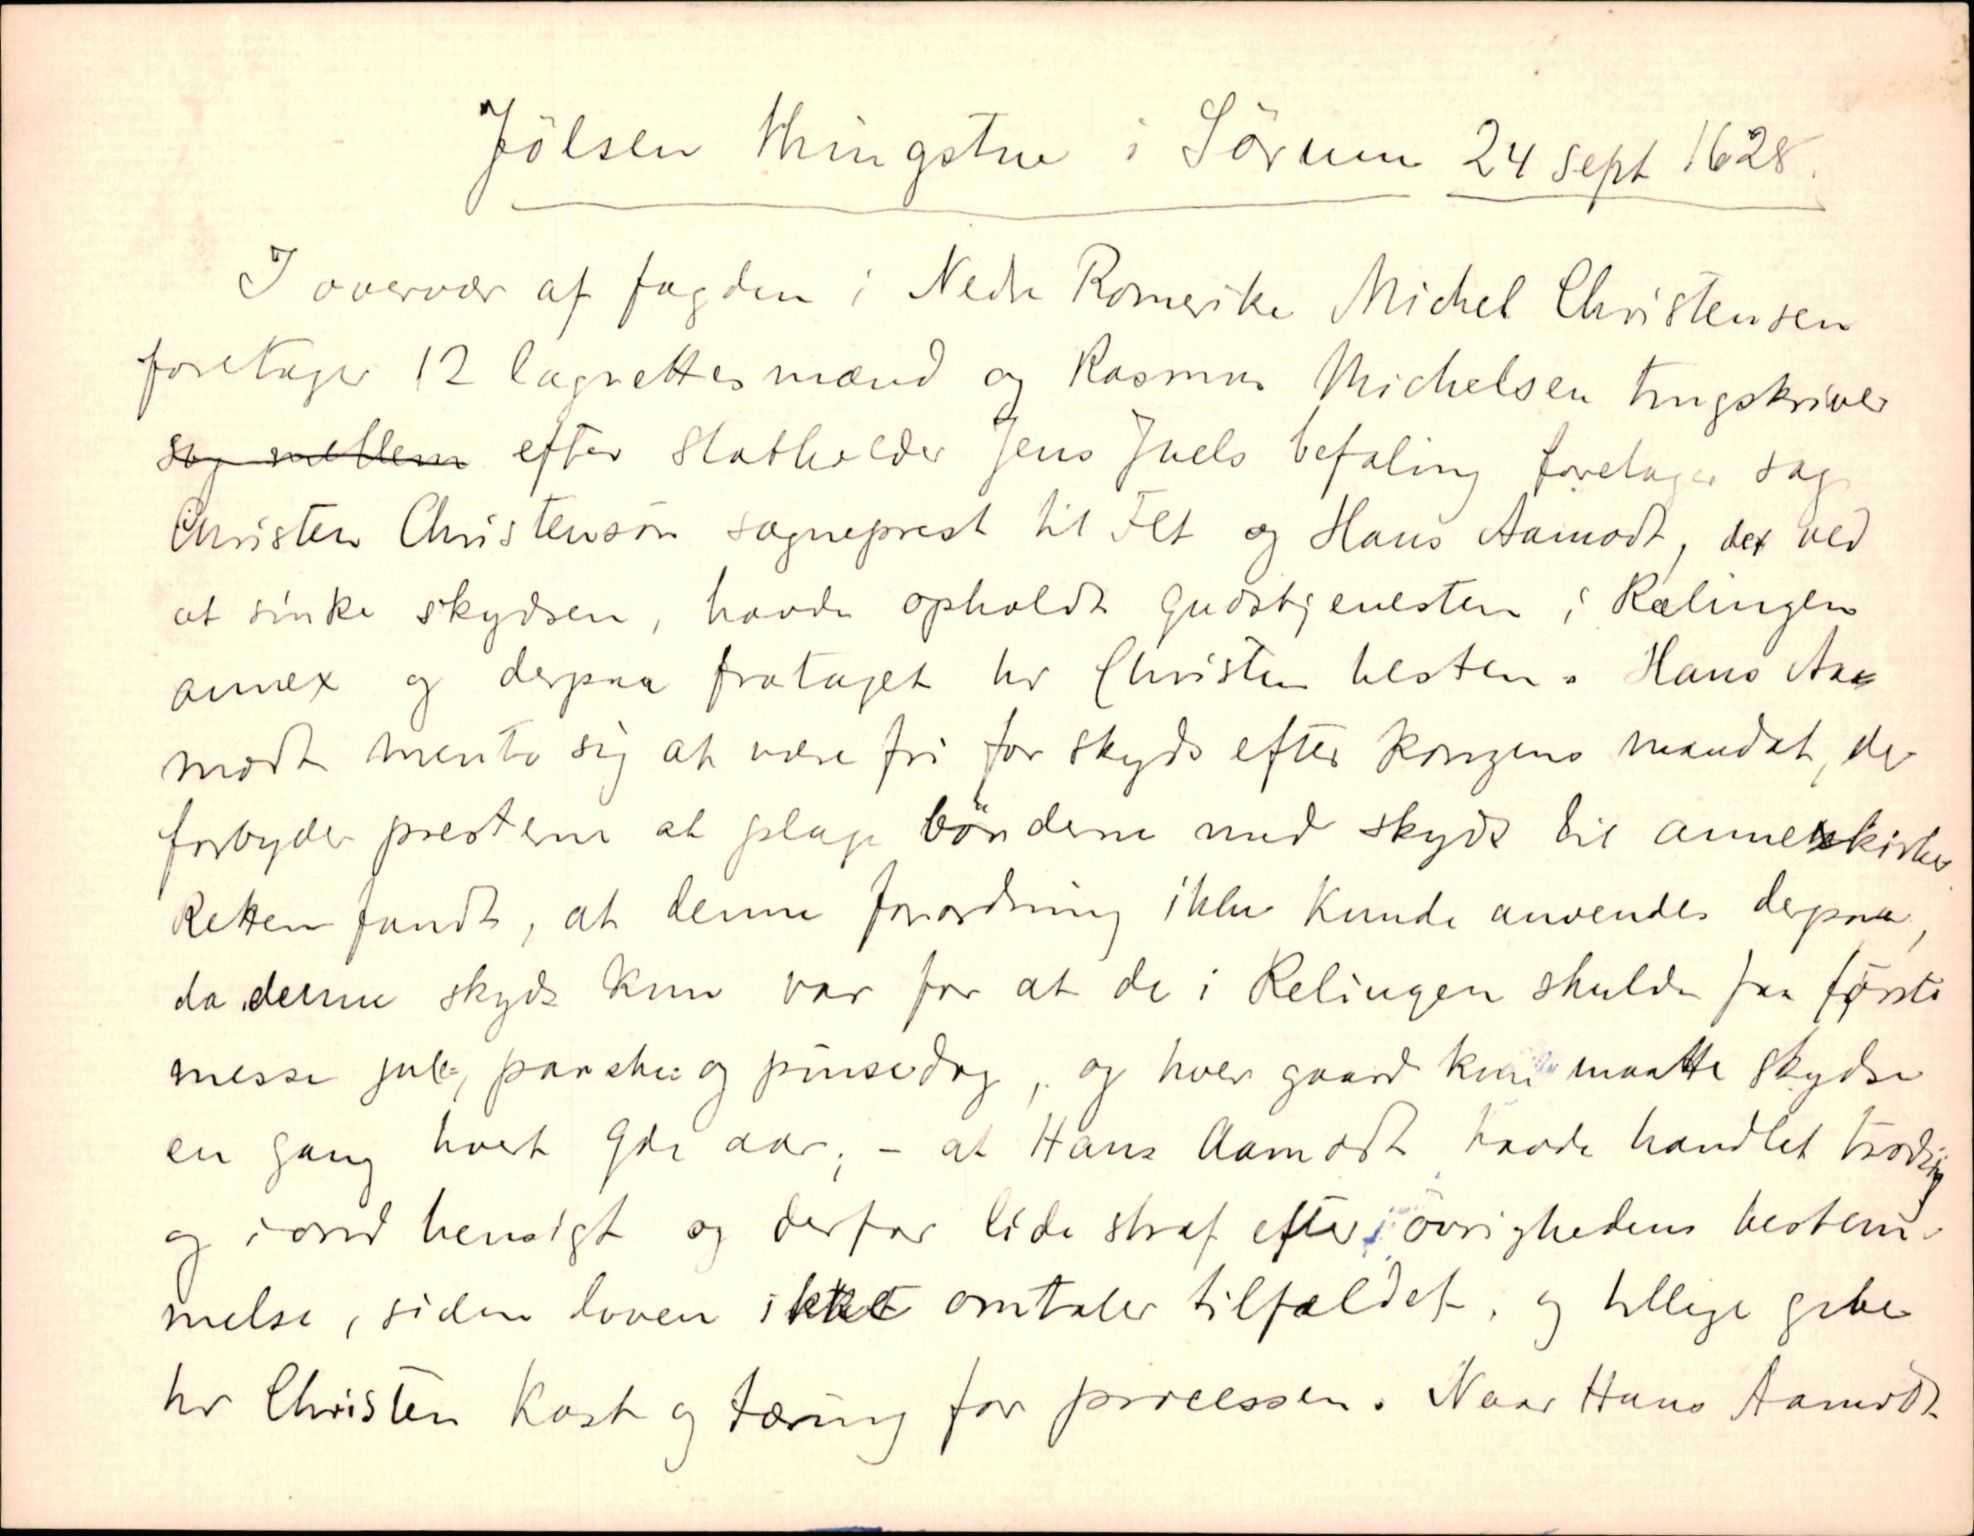 Jölsen thingstue i Sörum 24 sept 1628.
I overvær af fogden i Nedre Romerike Michel Christensen
foretager 12 lagrettesmænd og Rasmus Michelsen tingskriver
sag mellem efter statholder Jens Juels befaling foretager sag
Christen Christensön sogneprest til Fet og Hans Aamodt, der ved
at sinke skydsen, havde opholdt gudstjenesten i Rælingen
annex og derpaa frataget hr Christen hesten. Hans Aa=
modt mente sig at være fri for skyds efter kongens mandat, der
forbyder presterne at plage bönderne med skyds til annexkirker
Retten fandt, at denne forordning ikke kunde anvendes derpaa,
da denne skyds kun var for at de i Relingen skulde faa förste
messe jule=, paaske= og pinsedag, og hver gaard kun maatte skydse
en gang hvert 9de aar; – at Hans Aamodt havde handlet trodsig
og i ond hensigt og derfor lide straf efter övrighedens bestem=
melse, siden loven ikke omtaler tilfældet, og tillige give
hr Christen Kost og tæring for processen. Naar Hans Aamodt